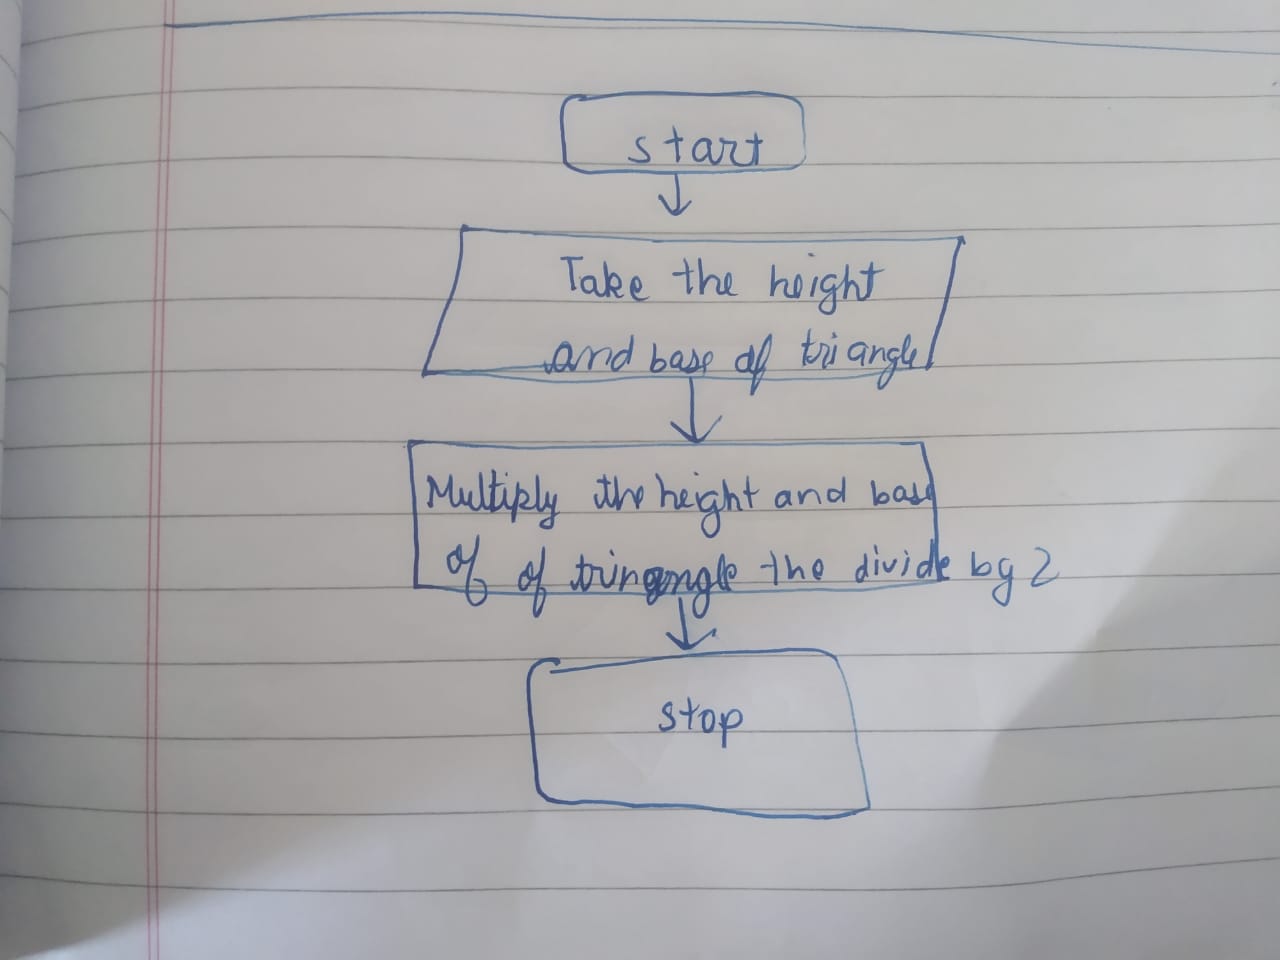 start
Take the height
and base of triangle
Multiply the height and base
of of tringangle the divide by 2
stop